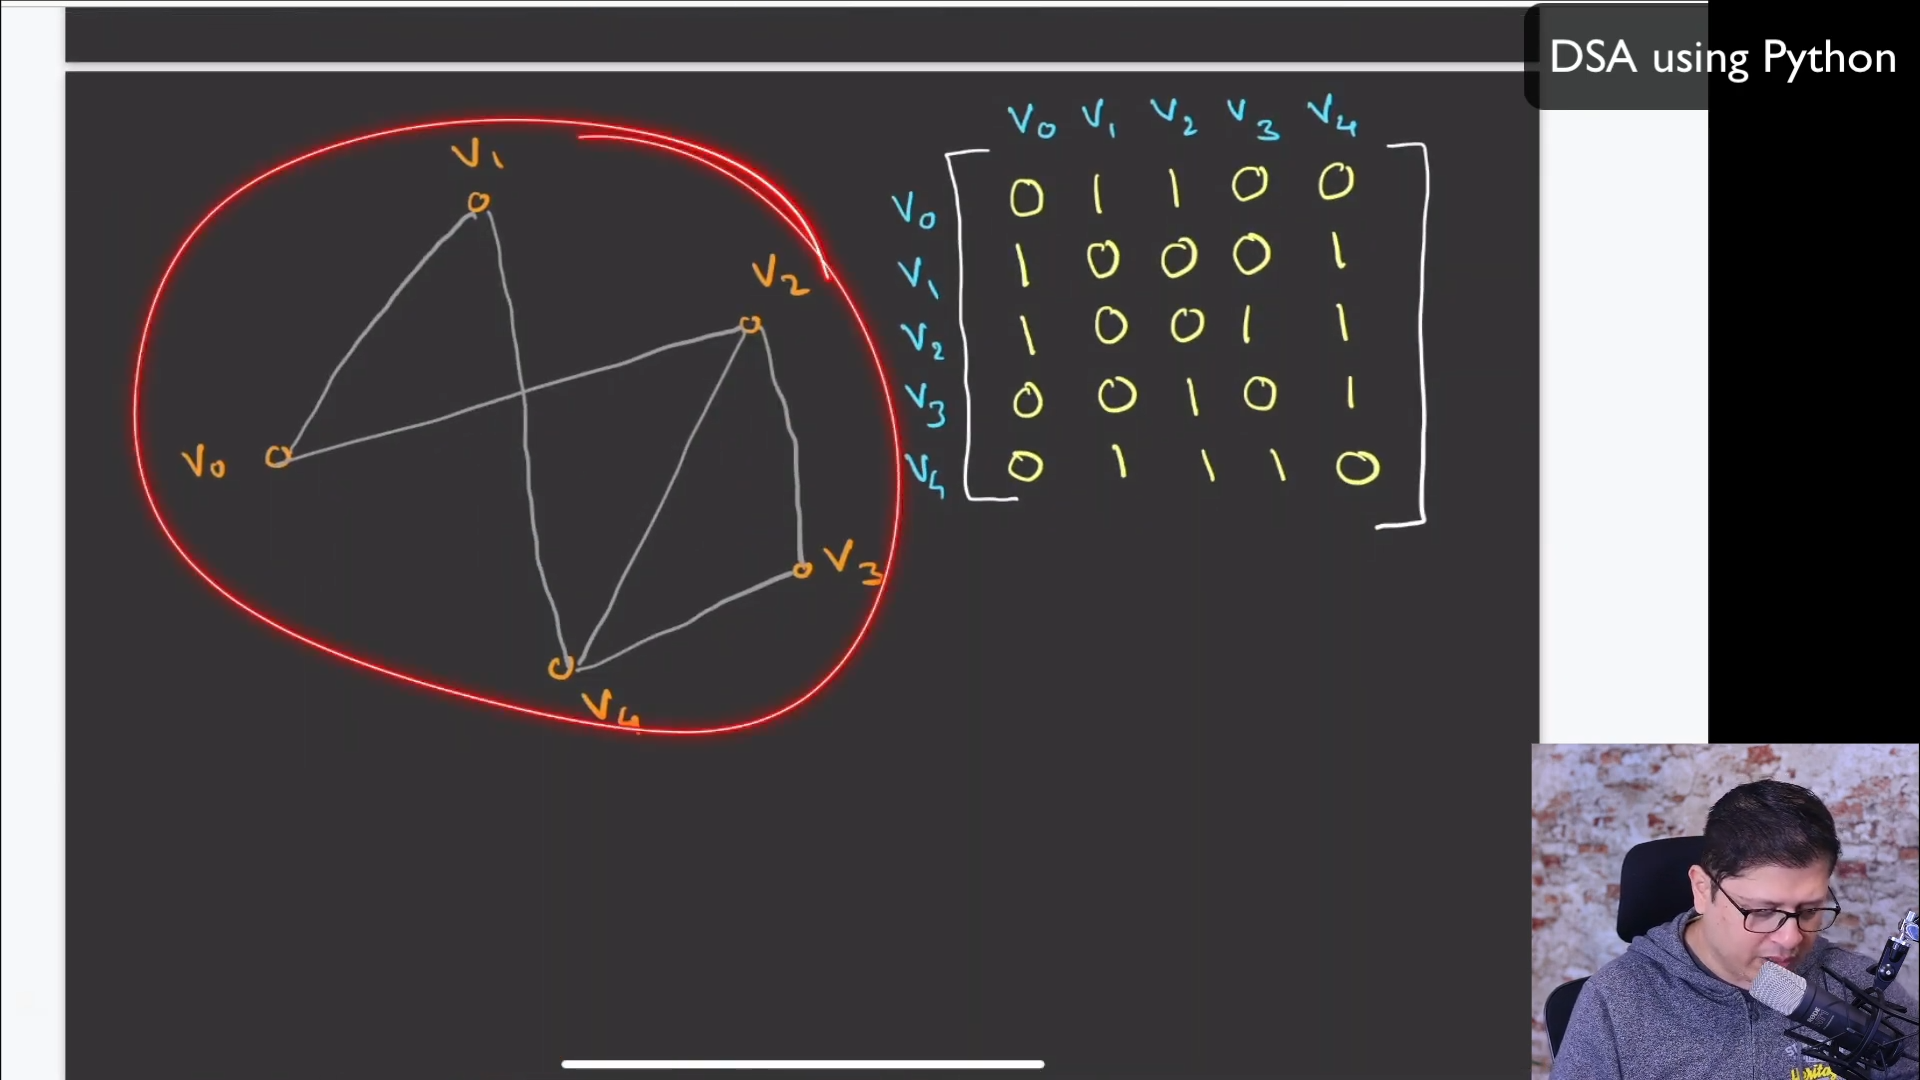 DSA using Python
V1
V2
V0
V3
V4
V0 V1 V2 V3 V4
V0 0 1 1 0 0
V1 1 0 0 0 1
V2 1 0 0 1 1
V3 0 0 1 0 1
V4 0 1 1 1 0